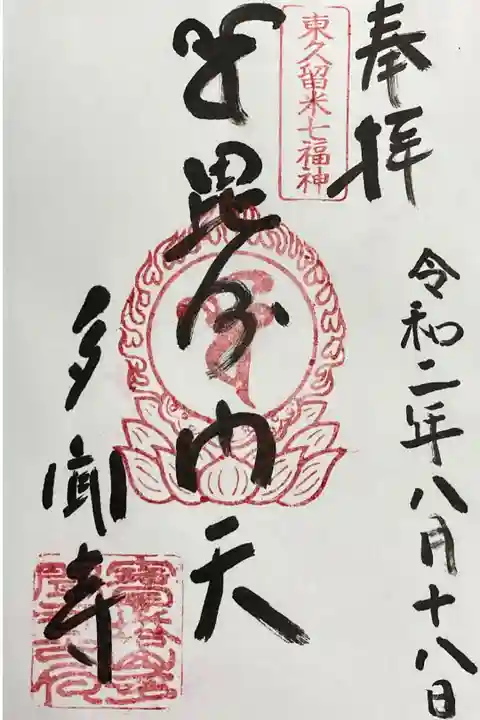 奉拝
東久留米七福神
令和二年八月十八日
毘沙門天
多聞寺